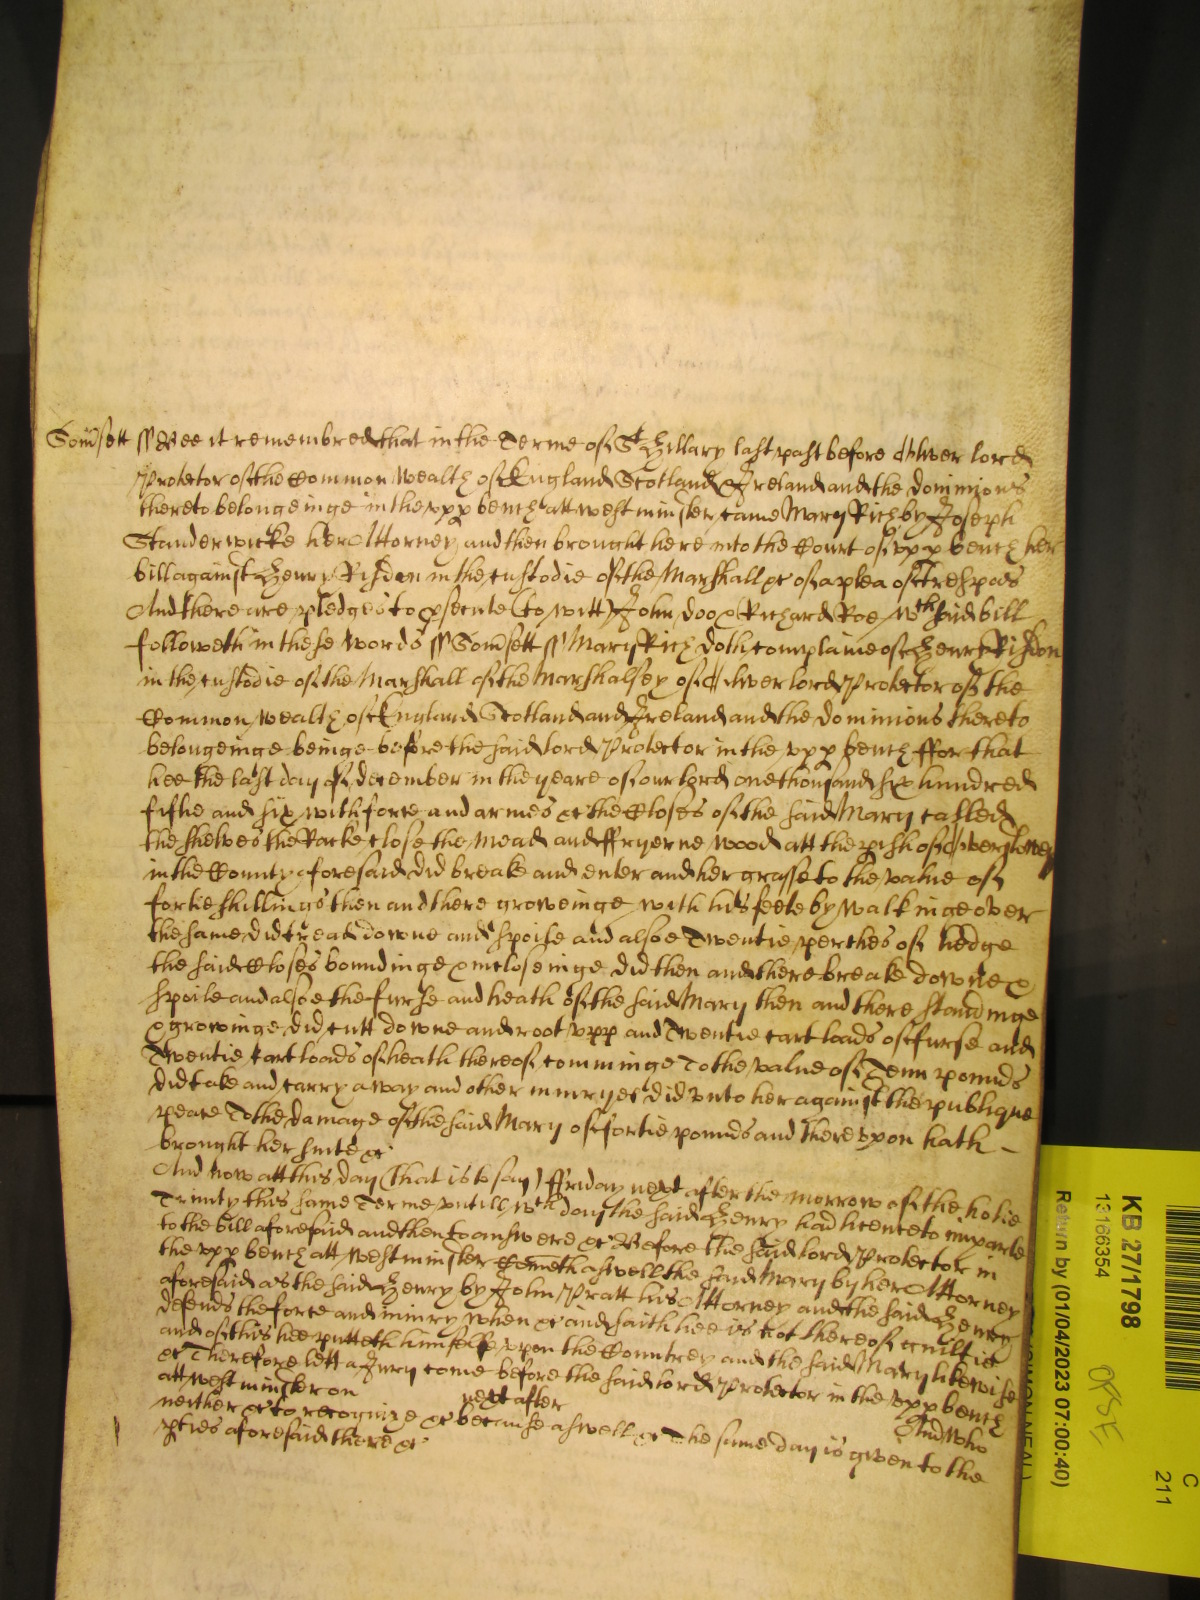 Som̃sett ss Bee it remembred that in the Terme of St Hillary last past before Oliver lord
Protector of the Common Wealth of England Scotland & Ireland and the dominions
thereto belongeinge in the upp bench att westminster came Mary Rich by Joseph
Standerwicke her Attorney and then brought here into the Court of upp bench her
bill against Henry Risdon in the custodie of the Marshall &c of a plea of trespas
And there are pledges to psecute (to witt) John Doo & Richard Roe wch said bill
followeth in these words ss Som̃sett ss Mary Rich doth complaine of Henry Risdon
in the custodie of the Marshall of the Marshalsey of Oliver lord Protector of the
Common Wealth of England Scotland and Ireland and the dominions thereto
belongeinge beinge before the said lord Protector in the upp bench ffor that
hee the last day of december in the yeare of our lord one thousand six hundred
fiftie and six with force and armes &c the Closes of the said Mary called
the shelves the Parke close the Mead and ffryerne wood att the pish of
in the County aforesaid did breake and enter and her grasse to the value of
fortie shillings then and there groweinge with his feete by walkinge over
the same did tread downe and spoile and alsoe Twentie perches of hedge
the said Closes boundinge & incloseinge did then and there breake downe &
spoile and alsoe the furse and heath of the said Mary then and there standinge
& growinge did cutt downe and root upp and Twentie cart loads of furse and
Twentie cart loads of heath thereof comminge To the value of Tenn pounds
did take and carry away and other iniuryes did unto her against the publique
peace To the damage of the said Mary of fortie pounds and thereupon hath
brought her suite &c
And now att this day (that is to say) ffriday next after the morrow of the holie
Trinity this same Terme untill wch day the said Henry had licence to imparle
to the bill aforesaid and then to answere &c Before the said lord Protector in
the upp bench att westminster Cometh aswell the said Mary by her Attorney
aforesaid as the said Henry by John Pratt his Attorney and the said Henry
defends the force and iniury when &c and saith hee is not thereof guiltie
and of this hee putteth himselfe upon the Countrey and the said Mary likewise
&c Therefore lett a Jury come before the said lord Protector in the upp bench
att westminster on next after And who
neither &c to recognize &c because aswell &c The same day is given to the
pties aforesaid there &c
KB 27/1798
13166354
Return by (01/04/2023 07:00:40)
C
211